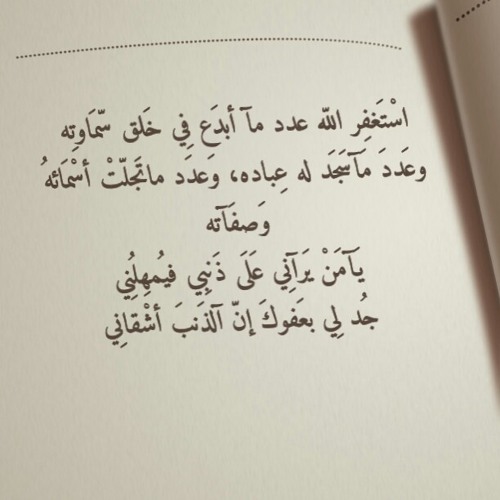 اسْتَغفِر اللّه عدد مآ أبدَع فِي خَلق سّمَاوتِه
وعَددَ مَآسَجَدَ له عِباده، وَعدَد ماتَجلّتْ أسْمَائهُ
وَصفَآته
يَآمَنْ يَرَآنِي عَلَى ذَنبِي فيُمهِلُنِي
جُد لِي بعَفوكَ إنّ آلذَنبَ أشْقانِي